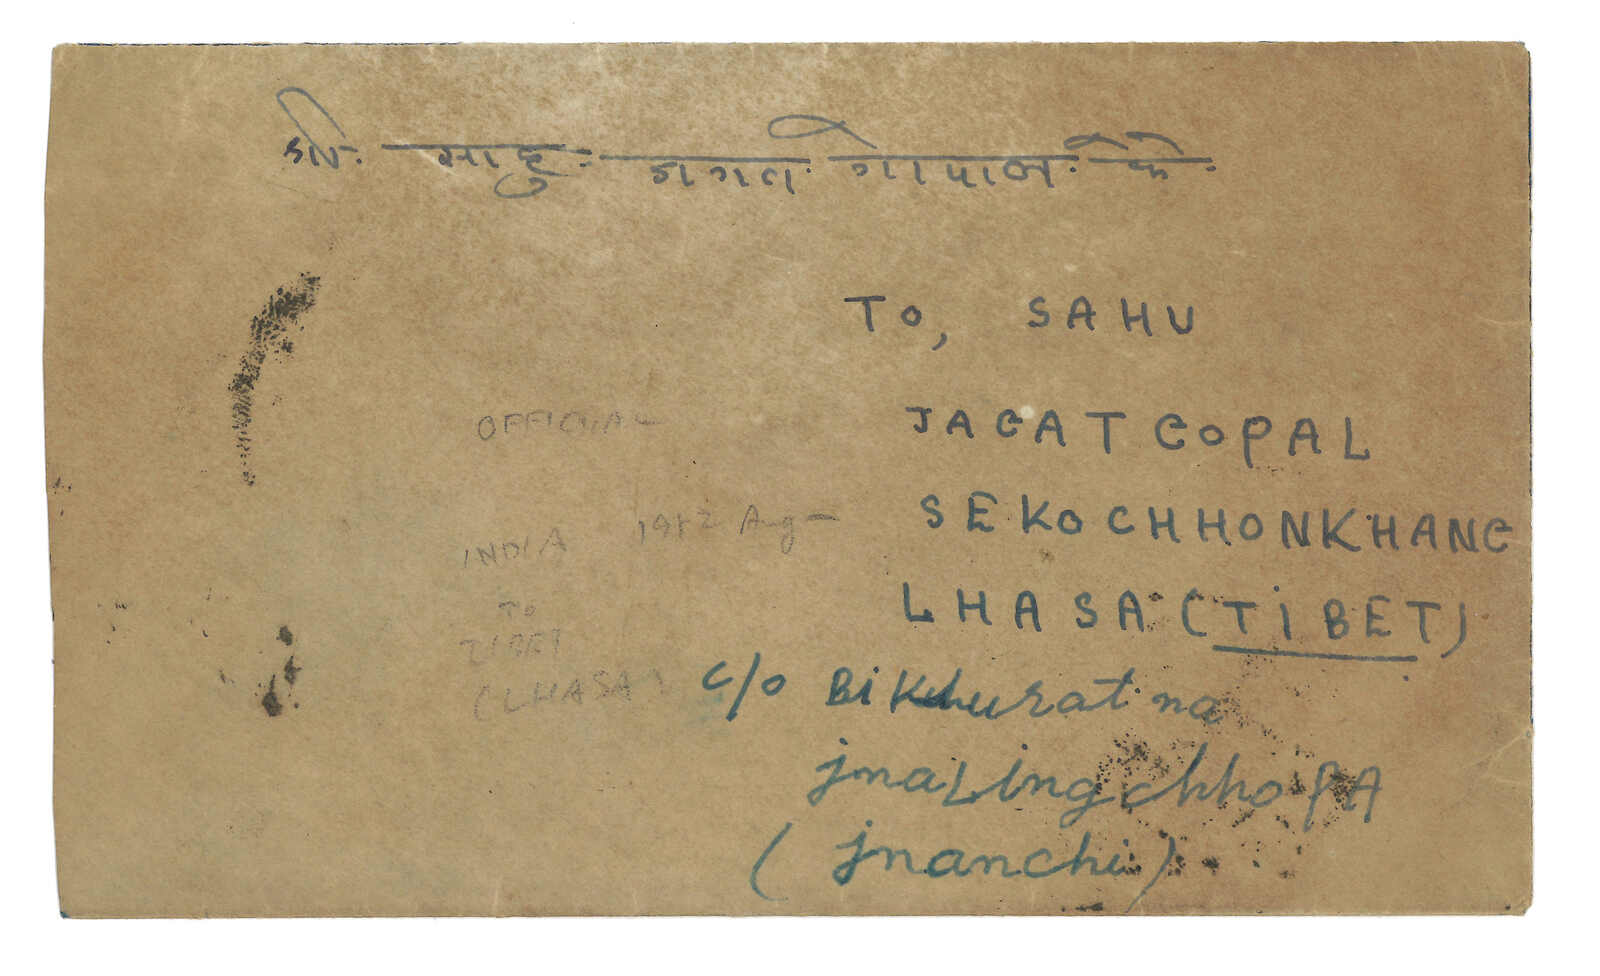 श्री. साहु: जगत गोपाल के.
To, SAHU
JAGAT GOPAL
SEKOCHHONKHANG
LHASA (TIBET)
c/o Bikhuratna
jnaLingchhoPA
(jnanchi)
OFFICIAL
INDIA Aug -
TO
TIBET
(LHASA)